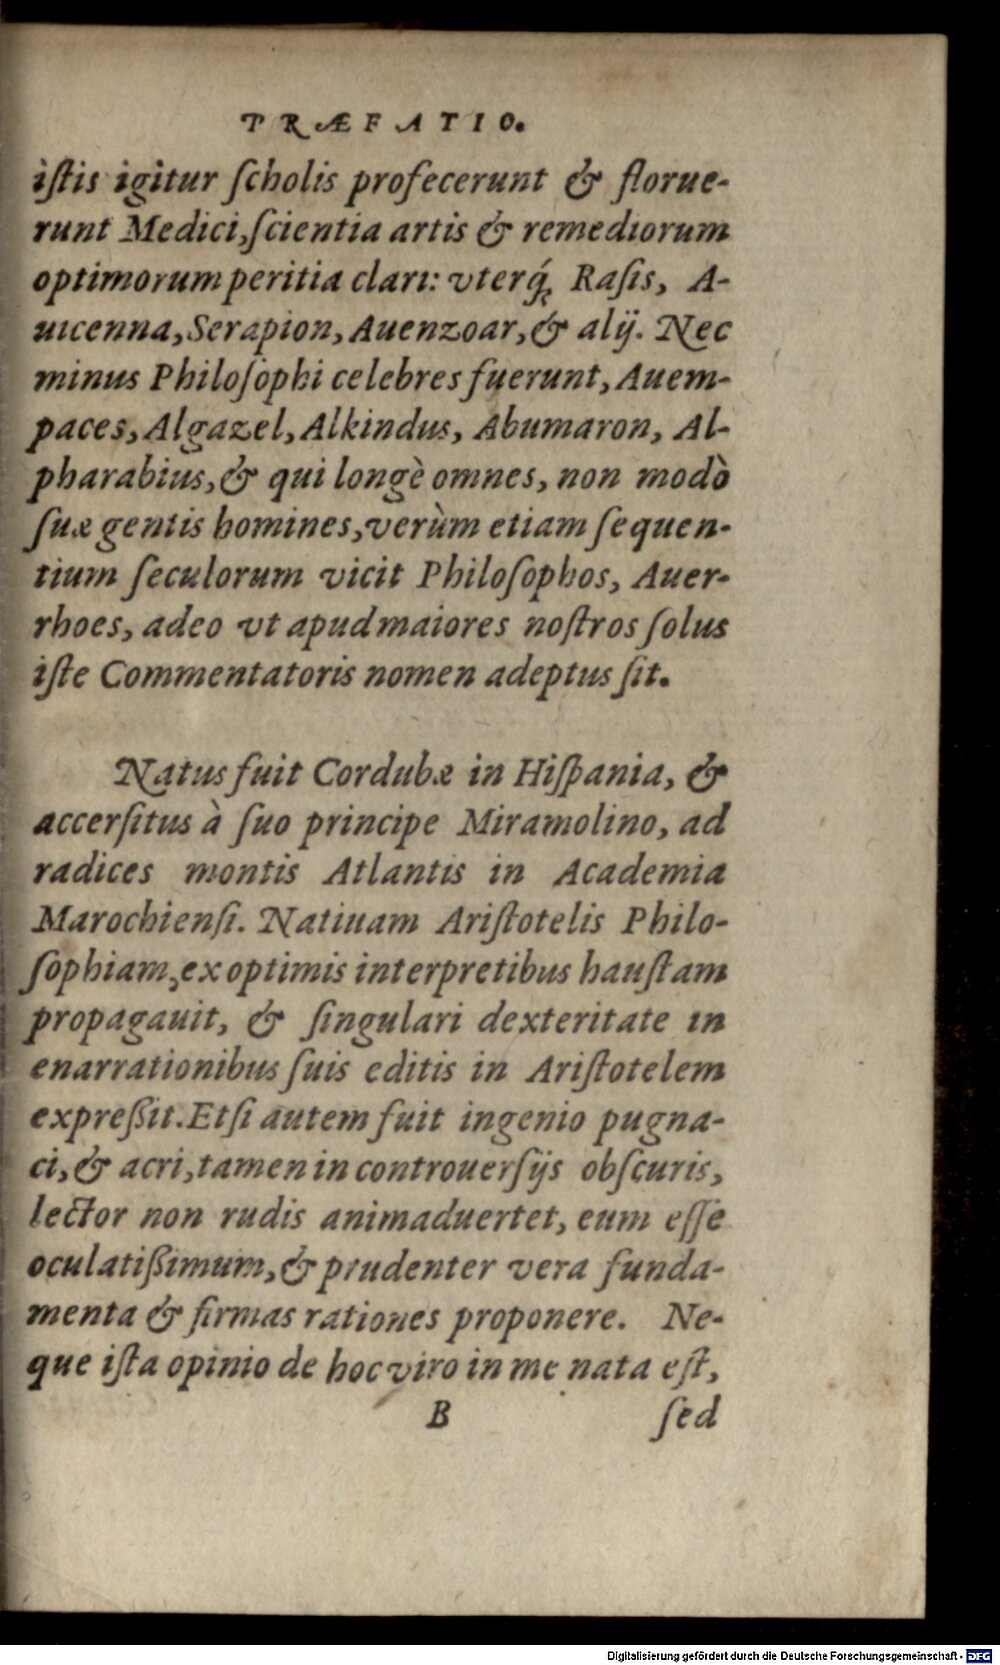 PRÆFATIO.
iſtis igitur ſcholis profecerunt & florue-
runt Medici, ſcientia artis & remediorum
optimorum peritia clari: vterq́; Raſis, A-
uicenna, Serapion, Auenzoar, & alij. Nec
minus Philoſophi celebres fuerunt, Auem-
paces, Algazel, Alkindus, Abumaron, Al-
pharabius, & qui longè omnes, non modò
ſuæ gentis homines, verùm etiam ſequen-
tium ſeculorum vicit Philoſophos, Auer-
rhoes, adeo vt apud maiores noſtros ſolus
iſte Commentatoris nomen adeptus ſit.
Natus fuit Cordubæ in Hiſpania, &
accerſitus à ſuo principe Miramolino, ad
radices montis Atlantis in Academia
Marochienſi. Natiuam Ariſtotelis Philo-
ſophiam, ex optimis interpretibus hauſtam
propagauit, & ſingulari dexteritate in
enarrationibus ſuis editis in Ariſtotelem
expreßit. Etſi autem fuit ingenio pugna-
ci, & acri, tamen in controuerſijs obſcuris,
lector non rudis animaduertet, eum eſſe
oculatißimum, & prudenter vera funda-
menta & firmas rationes proponere. Ne-
que iſta opinio de hoc viro in me nata eſt,
B ſed
Digitalisierung gefördert durch die Deutsche Forschungsgemeinschaft - DFG